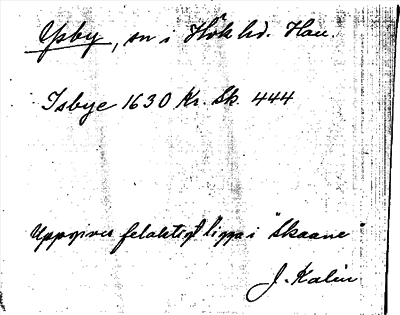 Ysby, sn i Höks hd. Hall.
Isbye 1630 Kr. Sk. 444
Uppgives felaktigt ligga i "Skaane"
J. Kalin